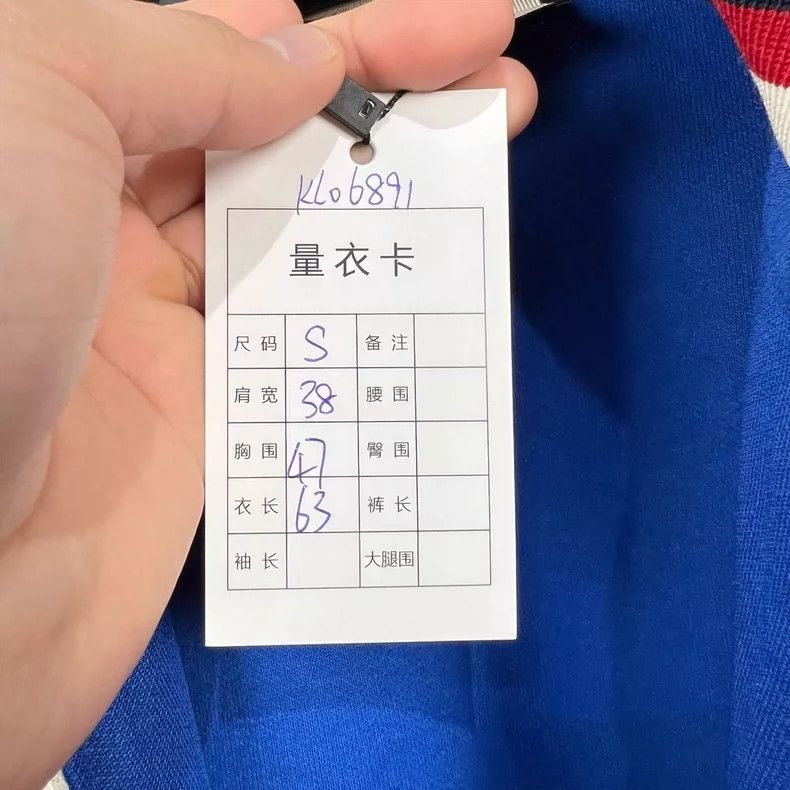 KL06891
量衣卡
尺码 S 备注
肩宽 38 腰围
胸围 47 臀围
衣长 63 裤长
袖长 大腿围